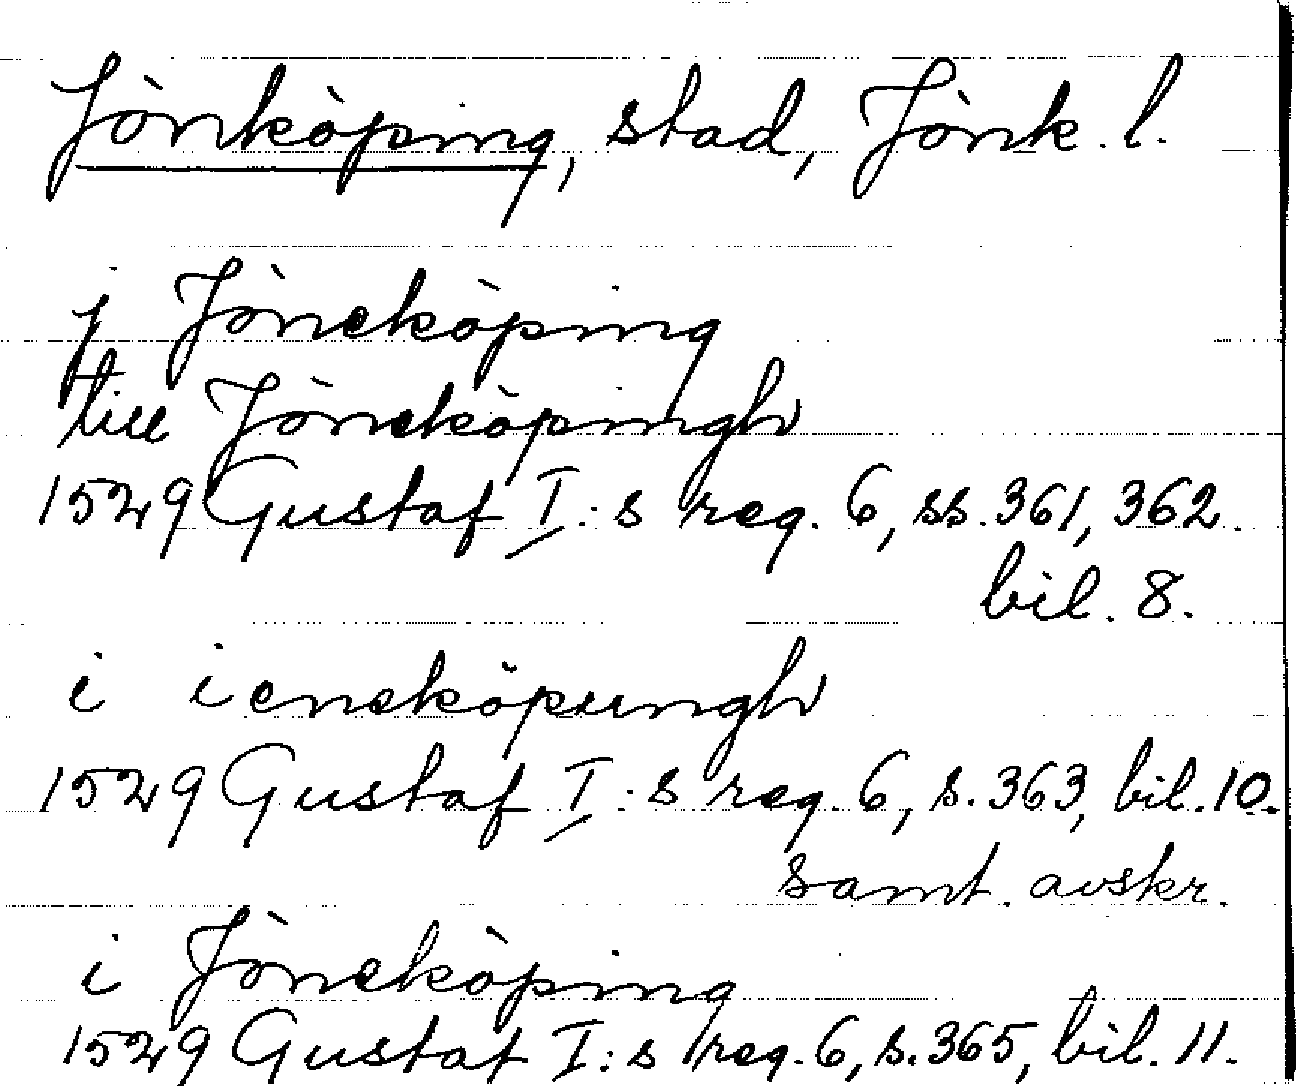 Jönköping, stad, Jönk. l.
j Jöneköping
till Jöneköpingh
1529 Gustaf I:s reg. 6, ss. 361, 362.
bil. 8.
i ieneköpungh
1529 Gustaf I:s reg. 6, s. 363, bil. 10.
samt. avskr.
i Jöneköping
1529 Gustaf I:s reg. 6, s. 365, bil. 11.